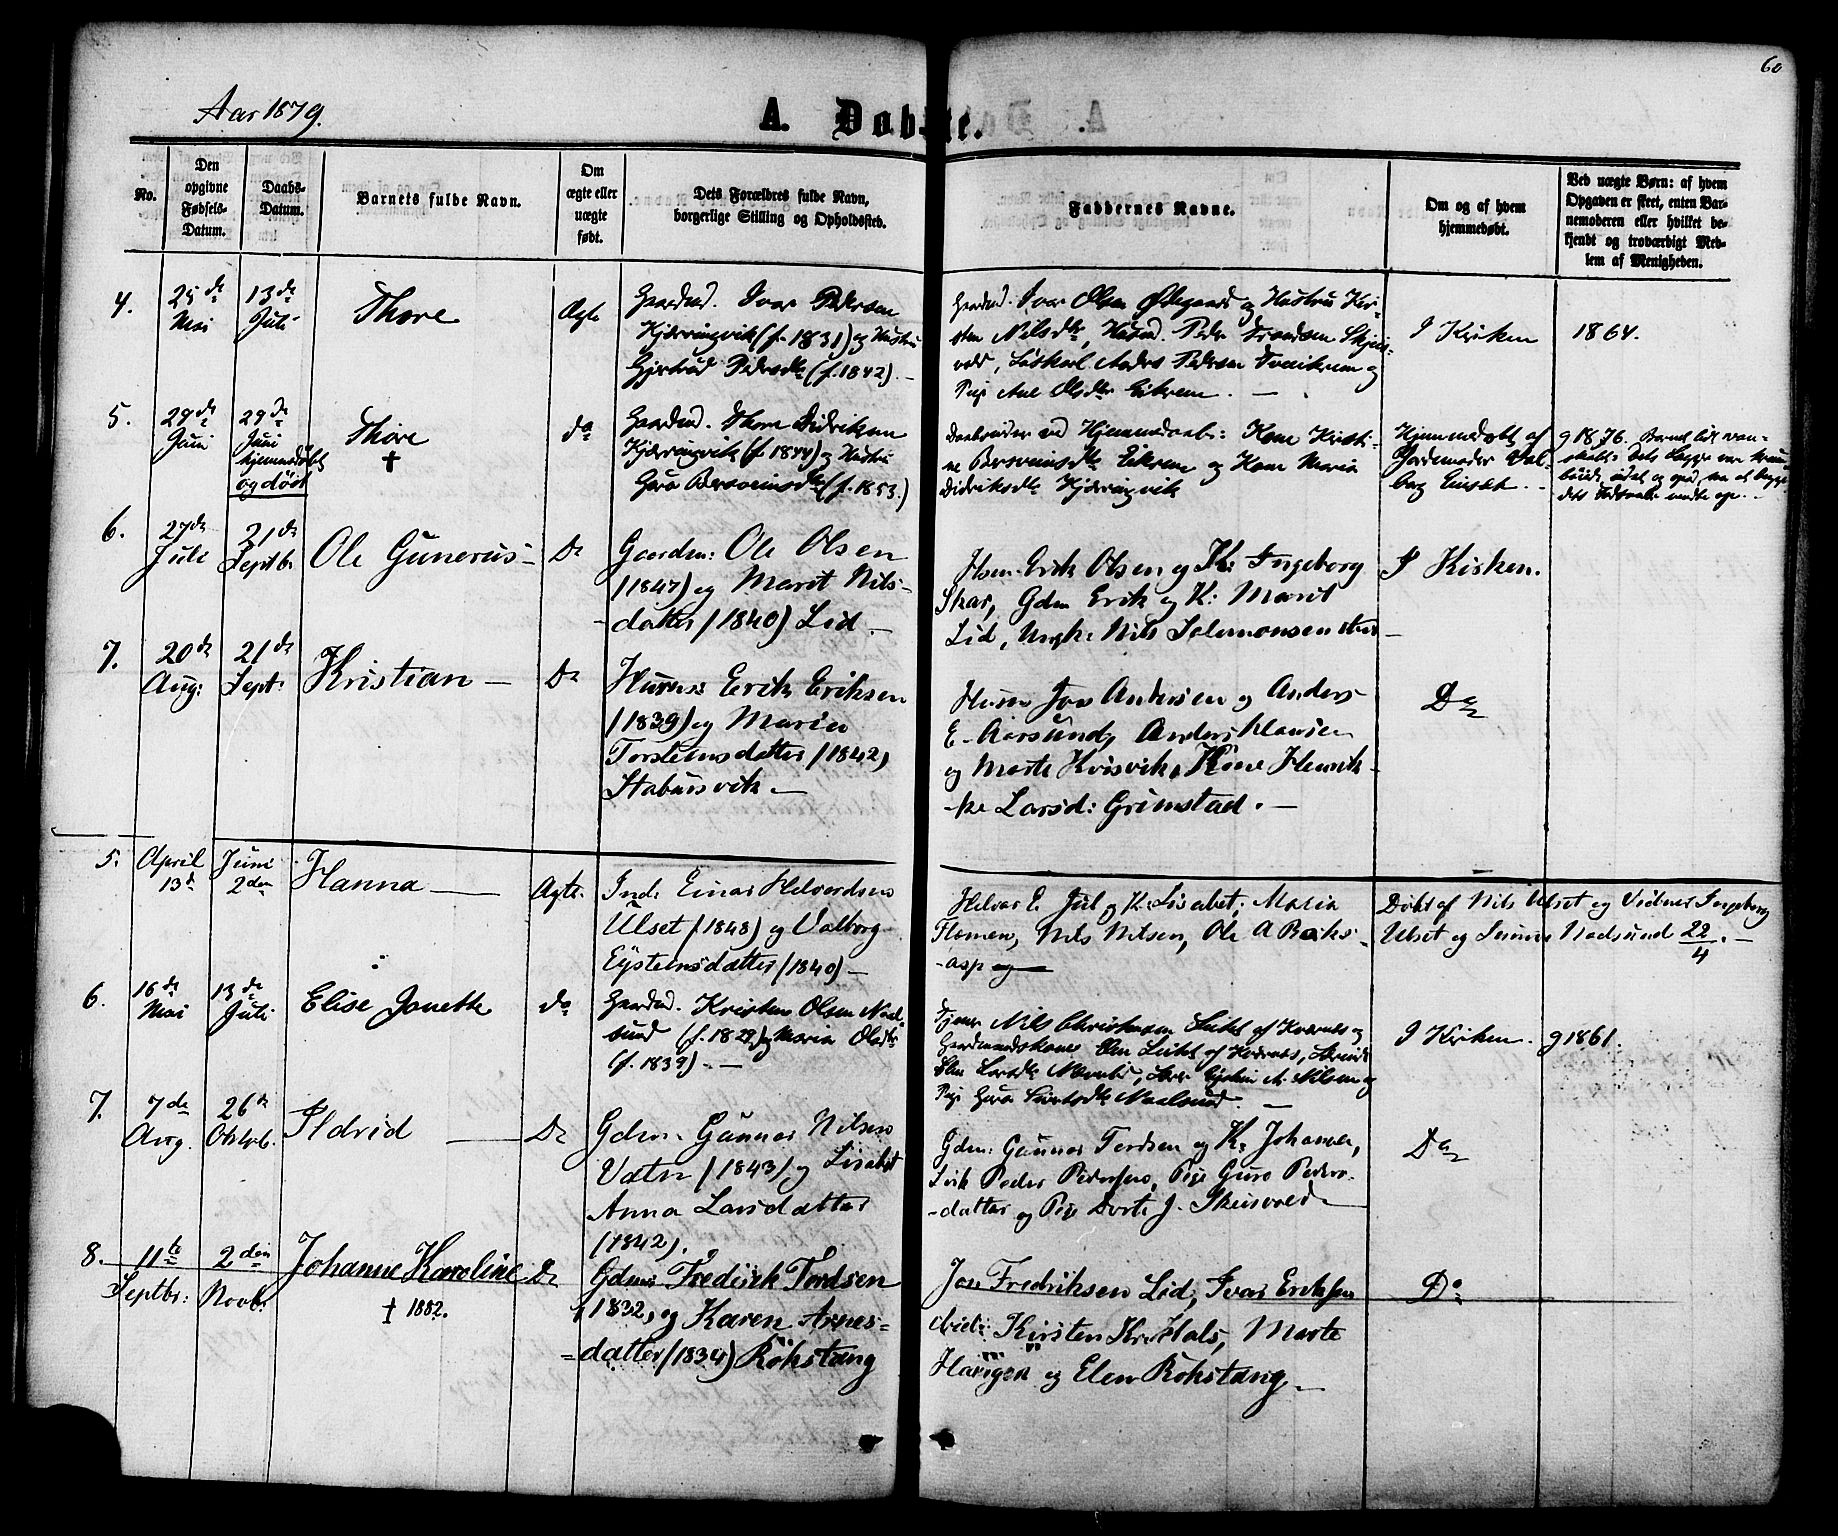 60
Aar 1879.
A. Døbte.
No.
Den
opgivne
Fødsels-
Datum.
Daabs-
Datum.
Barnets fulde Navn.
Om
ægte eller
uægte
født.
Dets Forældres fulde Navn,
borgerlige Stilling og Opholdssted.
Faddernes Navne.
Om og af hvem
hjemmedøbt.
Ved uægte Børn: af hvem
Opgaven er skeet, enten Bar-
nemoderen eller hvilket be-
kjendt og troværdigt Med-
lem af Menigheden.
4.
25de
Mai
13de
Juli
Thore
Ægte
Gaardmd. Ivar Pedersen
Kjærringvik (f. 1831) og Hustru
Gjertrud Pedersdtr (f. 1842). -
Gaardmd. Ivar Olsen Ødegaard og Hustru Kir-
sten Nilsdtr, Husmd. Peder Trondsen Skjeis-
vold, Anders Pedersen og
Pige Ane Olsdtr Eikrem. -
I Kirken
1864.
5.
29de
Juni
29de
Juni
hjemmedøbt
og død
Thore
†
do
Gaardmd. Thore Didriksen
Kjærringvik (f. 1844) og Hustru
Guro Bersveinsdtr (f. 1853.)
Daabsvidner ved Hjemmedaab: Kone Kristi-
ne Bersveinsdtr Eikrem og Kone Maria
Didriksdtr Kjærringvik
Hjemmedøbt af
Jordemoder Val-
borg
g 1876. Barnet
6.
27de
Juli
21de
Septb.
Ole Gunerus-
Do
Gaardm: Ole Olsen
(1847) og Marit Nils-
-datter (1840) Lid -
Husm. Erik Olsen og K: Ingeborg
Skar, Gdm Erik og K: Marit
Lid, Ungk. Nils Salamonsen
I Kirken.
7.
20de
Aug:
21de
Sept:
Kristian -
Do
Husm: Erik Eriksen
(1839) og Maria
Torsteinsdatter (1842)
Stabursvik. -
Husm Jon Andersen og Anders
E. Aarsund, Anders Hansen
og Marte Kvisvik, Kone Henrik-
-ke Larsd: Grimstad. -
Do
5.
April
13de
Juni
2den
Hanna -
Ægte.
Ind. Einar Helverdsen
Ulset (1848) og Valborg
Eysteinsdatter (1840) -
Helvar E. Jul og K: Lisabet, Maria
Flemen, Nils Nilsen, Ole A Boks-
-asp
Døbt af Nils Ulset og Vidner Ingeborg
Ulset og Nadsund 22/4. -
6.
16de
Mai
13de
Juli
Elise Janette
do
Gaardmd. Kristen Olsen Naal-
sund (f. 1829) og Maria Olsdtr
(f. 1839). -
Nils Christensen af Kvernes og
Gaardmandskone af Kvernes,
Larsdtr Nilsen og
Pige Guro Naalsund. -
I Kirken.
g 1861.
7.
7de
Aug.
26de
Oktob.
Ildrid -
Do
Gdm. Gunnar Nilsen
Vatn (1843) og Lisabet
Anna Larsdatter
(1842).
Gdm: Gunnar Tordsen og K: Johanna,
Peder Pedersen, Pige Guro Peders-
-datter og Pige Dorte J. Skeisvold
Do
8.
11te
Septbr:
2den
Novb.
Johanne Karoline
† 1882.
Do
Gdm: Fredrik Tordsen
(1832) og Karen Arnes-
-datter (1834) Røkstang
Jon Fredriksen Lid, Ivar Eriksen
Kirsten Kr. Hals, Marte
Haugen og Elen Røkstang -
Do